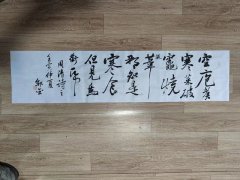 空庖煮
寒菜破
竈燒
葦
那知是
寒食
但見烏
銜紙
壬寅仲夏